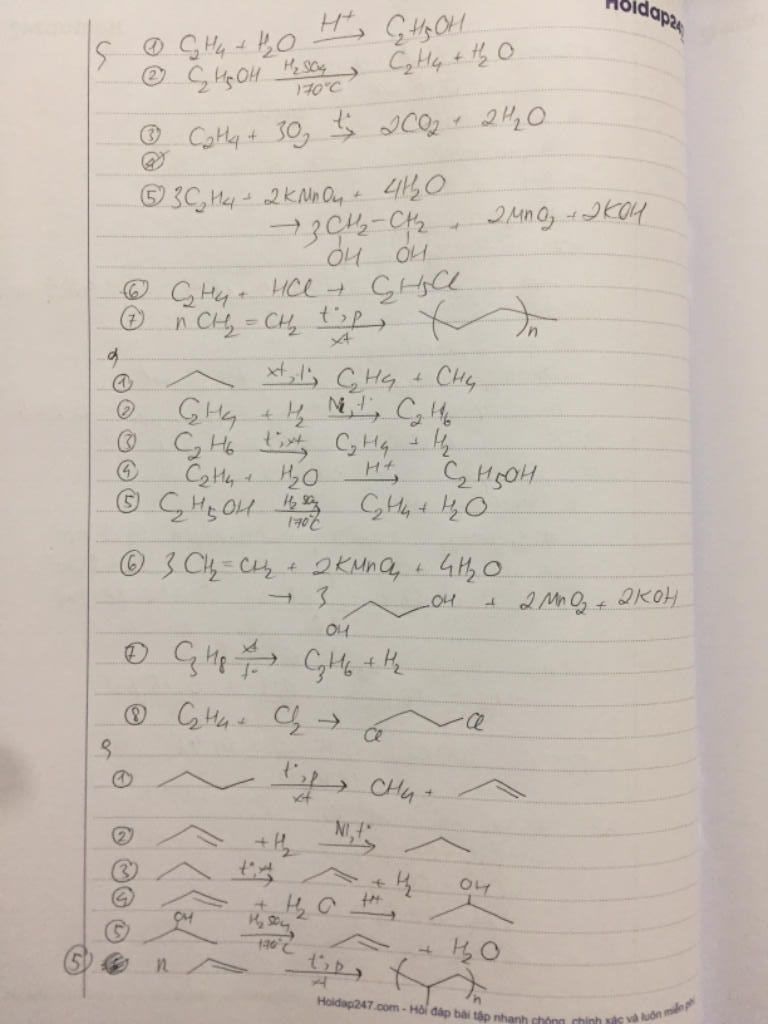 Hoidap247
ς ① C₂H₄ + H₂O —H⁺→ C₂H₅OH
② C₂H₅OH —H₂SO₄ 170°C→ C₂H₄ + H₂O
③ C₂H₄ + 3O₂ —t°→ 2CO₂ + 2H₂O
⑤ 3C₂H₄ + 2KMnO₄ + 4H₂O
→ 3 CH₂–CH₂ + 2MnO₂ + 2KOH
OH OH
⑥ C₂H₄ + HCl → C₂H₅Cl
⑦ n CH₂=CH₂ —t°,p xt→ ( )n
① —xt,t°→ C₂H₄ + CH₄
② C₂H₄ + H₂ —Ni,t°→ C₂H₆
③ C₂H₆ —t°,xt→ C₂H₄ + H₂
④ C₂H₄ + H₂O —H⁺→ C₂H₅OH
⑤ C₂H₅OH —H₂SO₄ 170°C→ C₂H₄ + H₂O
⑥ 3 CH₂=CH₂ + 2KMnO₄ + 4H₂O
→ 3 OH OH + 2MnO₂ + 2KOH
⑦ C₃H₈ —xt t°→ C₃H₆ + H₂
⑧ C₂H₄ + Cl₂ → Cl Cl
① —t°,p xt→ CH₄ +
② + H₂ —Ni,t°→
③ —t°,xt→ + H₂
④ + H₂O —H⁺→ OH
⑤ OH —H₂SO₄ 170°C→ + H₂O
⑤ n —t°,p xt→ ( )n
Hoidap247.com - Hỏi đáp bài tập nhanh chóng, chính xác và luôn miễn phí